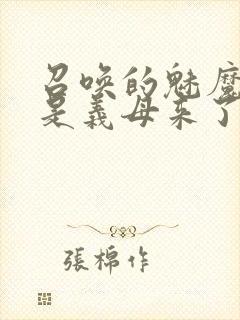 召唤的魅魔
是義母来了
張棉作